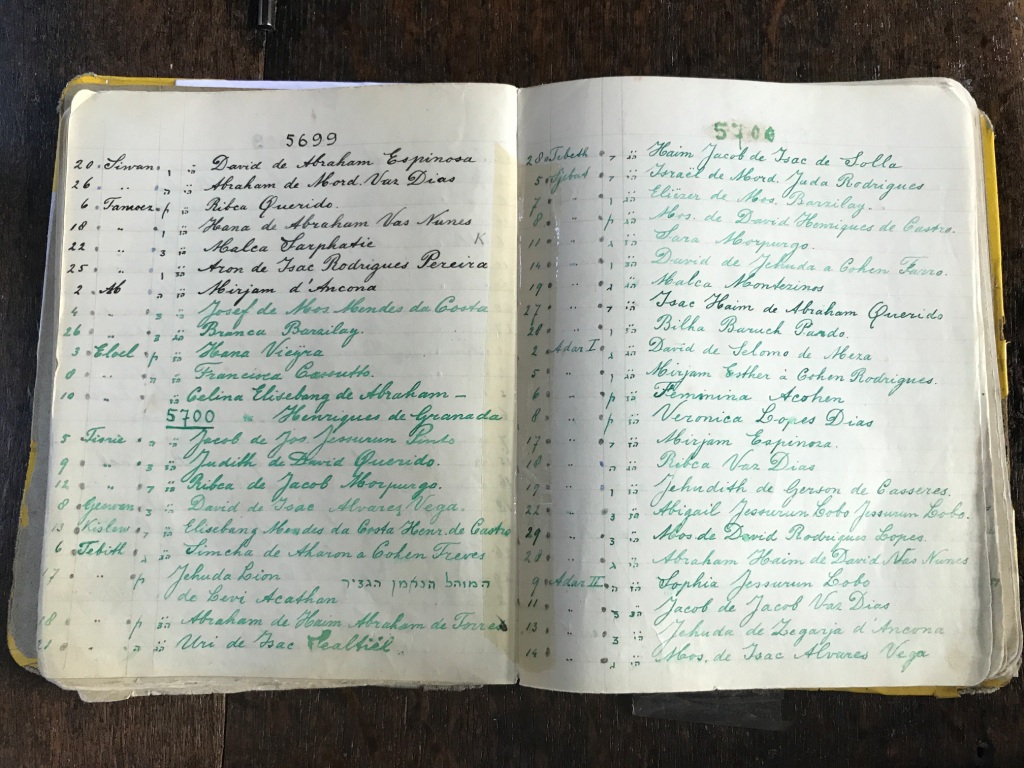 5699
20 Siwan ו הז David de Abraham Espinosa
26 " ה הז Abraham de Mord. Vaz Dias
6 Tamoez Ribca Querido.
18 " ו Hana de Abraham Vas Nunes
22 " Malca Sarphatie K
25 " ו Aron de Isac Rodrigues Pereira
2 Ab Mirjam d'Ancona
4 " Josef de Mos Mendes da Costa
26 " Branca Barzilay.
3 Eloel Hana Vieÿra
8 " Francisca Cassutto.
10 " Celina Elisebang de Abraham –
5700 Henriques de Granada
5 Tisrie Jacob de Jos. Jessurun Pinto
9 " Judith de David Querido.
12 " Ribca de Jacob Morpurgo.
8 Geswan David de Isac Alvarez Vega.
13 Kislew Elisebang Mendes da Costa Henr. de Castro
6 Tebith Simcha de Aharon a Cohen Treves
17 " Jehuda Lion המוהל הנאמן הגביר
de Levi Acathan
18 " Abraham de Haim Abraham de Torres
21 " Uri de Isac Sealtiël.
5700
28 Tebeth Haim Jacob de Isac de Solla
5 Sjebat Israël de Mord. Juda Rodrigues
7 " Eliëzer de Mos. Barzilay.
8 " Mos. de David Henriques de Castro.
11 " Sara Morpurgo.
14 " David de Jehuda a Cohen Farro.
19 " Malca Montezinos
27 " Isac Haim de Abraham Querido
28 " Bilha Baruch Pardo.
2 Adar I David de Selomo de Meza
5 " Mirjam Esther à Cohen Rodrigues.
6 " Feminina Acohen
8 " Veronica Lopes Dias
17 " Mirjam Espinoza.
18 " Ribca Vaz Dias
19 " Jehudith de Gerson de Casseres.
22 " Abigail Jessurun Lobo Jessurun Lobo.
29 " Mos. de David Rodrigues Lopes.
20 " Abraham Haim de David Vas Nunes
9 Adar II Sophia Jessurun Lobo
11 " Jacob de Jacob Vaz Dias
13 " Jehuda de Zegarja d'Ancona
14 " Mos. de Isac Alvares Vega